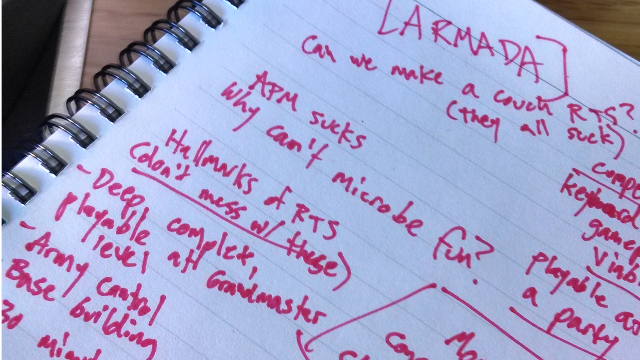 [ARMADA]
Can we make a couch RTS?
(they all suck)
APM sucks
Why can't microbe fun?
Hallmarks of RTS
(don't mess w/ these)
- Deep, complex,
playable at
level Grandmaster
- Army control
Base building
30
Keyboard
playable as
a party